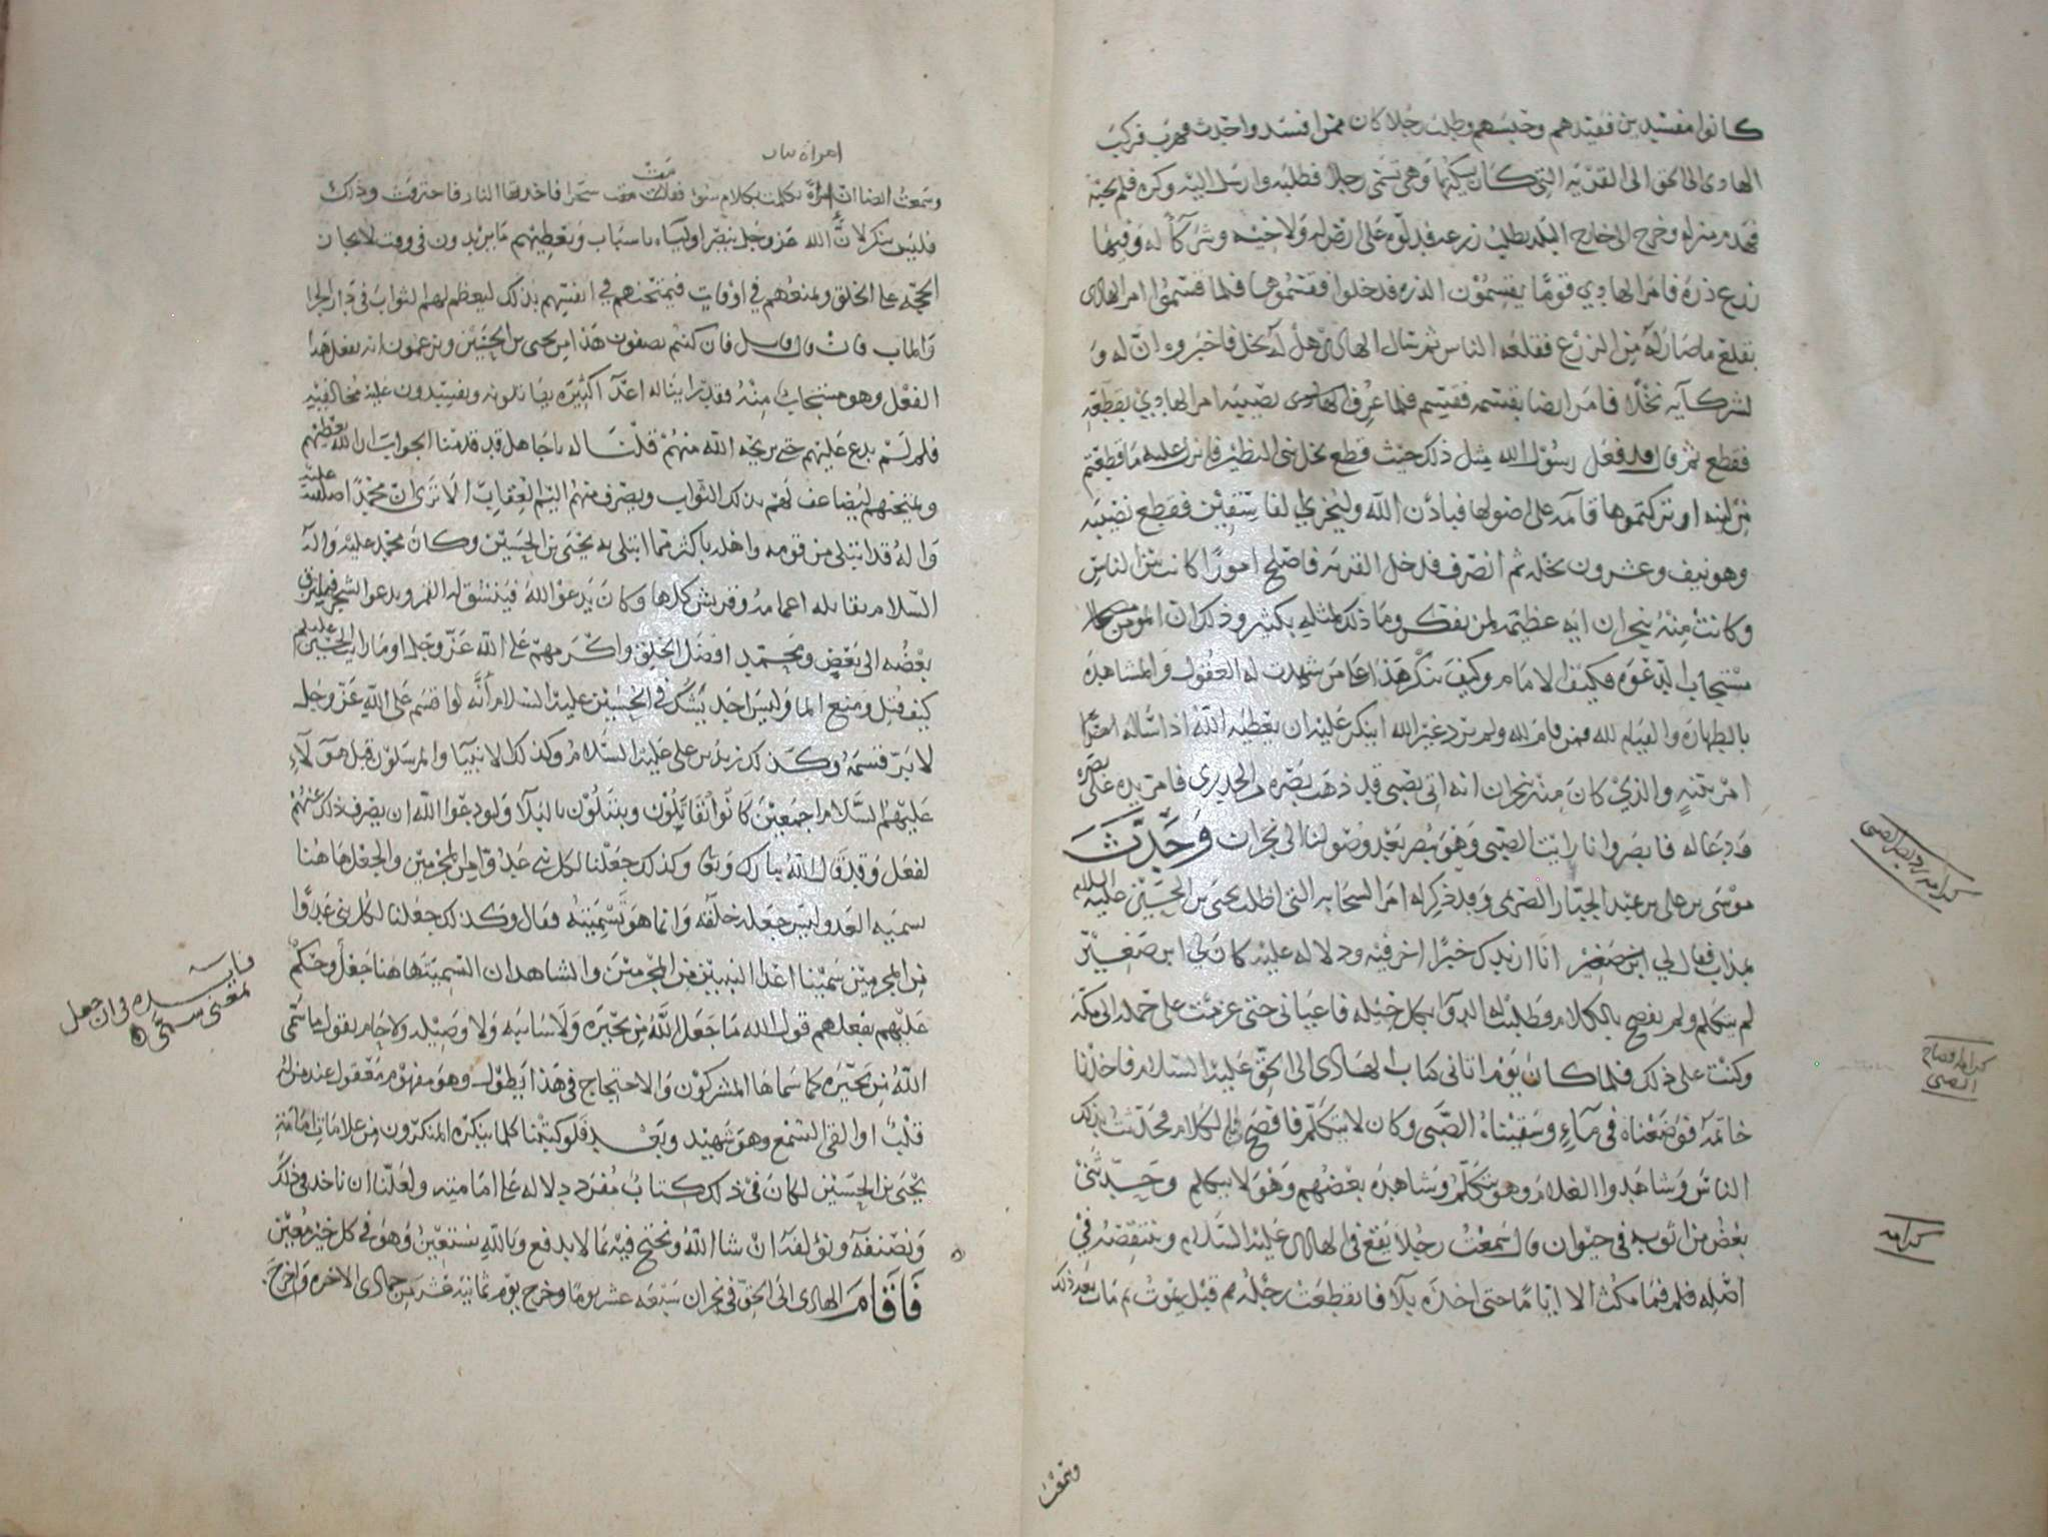 كانوا مفسدين فقيدهم وحبسهم وطلب رجلا كان ممن افسد واحدث فهرب فركب
الهادي الى الحق الى القرية التي كان يسكنها وهي تسمى رجلا فطلبه وارسل اليه وكره فلم يجبه
فهدم منزله وخرج الى خارج البلد يطلب زرعه فدلوه على ارض له ولاخيه وشركآ له وفيها
زرع ذرة فامر الهادي قوما يقسمون الذره فدخلوا فقسموها فلما قسموا امر الهادي
بقلع ما صار له من الزرع فقلعه الناس ثم قال الهادي هل له نخل فاخبروه ان له و
لشركآيه نخلا فامر ايضا بقسمه فقسم فلما عرف الهادي نصيبه امر الهادي بقطعه
فقطع ثم قال قد فعل رسول الله مثل ذلك حيث قطع نخل بني النظير فانزل عليه ما قطعتم
من لينه او تركتموها قآمه على اصولها فباذن الله وليخزي الفاسقين فقطع نصيبه
وهو نيف وعشرون نخله ثم انصرف فدخل القرية فاصلح امورا كانت بين الناس
وكانت منه بنجران ايه عظيمه لمن تفكر وما ذلك لمثله بكثير وذلك ان المومن
مستجاب الدعوه فكيف الامام وكيف ننكر هذا على من شهدت له العقول والمشاهده
بالطهاره والقيام لله فمن قام لله ولم يرد غير الله اينكر عليه ان يعطيه الله اذا ساله امرا
امر بتنبه والذي كان منه بنجران انه اتى بصبي قد ذهب بصره من الجدري فامر يده على بصره
ودعا له فابصر وانا رايت الصبي وهو يبصر بعد وصولنا الى نجران وحدث
موسى بن علي بن عبد الجبار الصرمي وقد ذكر له امر السحابه التي اظلت يحيى بن الحسين عليه السلام
بمذاب فقال لي انا ازيدك خبرا اخر فيه ودلاله عليه كان لي ابن صغير
لم يتكلم ولم يفصح بالكلام وطلبت له الدوا بكل حيله فاعياني حتى عزمت على حمله الى مكة
وكنت على ذلك فلما كان يوم اتاني كتاب الهادى الى الحق عليه السلام فاخذنا
خاتمه فوضعناه في مآء وسقيناه الصبي وكان لا يتكلم فافصح بالكلام وتحدث بذلك
الناس وشاهدوا الغلام وهو يتكلم وشاهده بعضهم وهو لا يتكلم وحدثني
بعض من اثق به في حيوان قال سمعت رجلا يقع في الهادي عليه السلام وينتقصه في
اصله فلم فما مكث الا اياما حتى اخذه بلآ فانقطعت رجله ثم قبل يموت ثم مات بعد ذلك
كرامه رد بصر الصبي
كرامه افصاح
الصبي
كرامه
وسمعت
امراة
وسمعت ايضا ان امراة تكلمت بكلام سؤ فقامت سحرا فاخذتها النار فاحترقت وذلك
فليس ينكر لان الله عز وجل ينصر اولياء باسباب ويعطيهم ما يريدون في وقت لايجاب
الحجه على الخلق ويمنعهم في اوقات فيمتحنهم في انفسهم بذلك ليعظم لهم الثواب في دار الجزا
والماب فان قال قايل فان كنتم تصفون هذا من يحيى بن الحسين وتزعمون انه يفعل هذا
الفعل وهو مستجاب منه فقد راينا له اعدآ كثيره يقاتلونه ويفسدون عليه مخالفيه
فلم لم يدع عليهم حتى يريحه الله منهم قلنا له يا جاهل قد قدمنا الجواب ان الله يعطيهم
ويمتحنهم ليضاعف لهم بذلك الثواب ويصرف منهم اليم العقاب الا ترى ان محمدا صلى الله عليه
واله قد ابتلي من قومه واهله باكثر مما ابتلي به يحيى بن الحسين وكان محمد عليه واله
السلام يقاتله اعمامه وقريش كلها وكان يدعو الله فينشق له القمر ويدعو الشجر فيلتزق
بعضه الى بعض ومحمد افضل الخلق واكرمهم على الله عز وجل او ما رايت الحسين عليه السلم
كيف قتل ومنع الما وليس احد يشك في الحسين عليه السلام انه لو اقسم على الله عز وجل
لابر قسمه وكذلك زيد بن علي عليه السلام وكذلك الانبيآ والمرسلون قبل هولآء
عليهم السلام اجمعين كانوا يقاتلون ويبتلون بالبلآ ولو دعوا الله ان يصرف ذلك عنهم
لفعل وقد قال الله تبارك وتعالى وكذلك جعلنا لكل نبي عدوا من المجرمين والجعل هاهنا
تسميه العدو ليس جعله خلقه وانما هو تسميته فقال وكذلك جعلنا لكل نبي عدوا
من المجرمين سمينا اعدا النبيين من المجرمين والشاهد ان التسمية هاهنا جعل وحكم
عليهم بفعلهم قول الله ما جعل الله من بحيره ولا سايبه ولا وصيله ولا حام يقول ما سمى
الله من بحيره كما سماها المشركون والاحتجاج في هذا يطول وهو مفهوم معقول عند من له
قلب او القى السمع وهو شهيد وبعد فلو كتبنا كلما ينكره المنكرون من علامات امامة
يحيى بن الحسين لكان في ذلك كتاب مفرد دلاله على امامته ولعلنا ان ناخذ في ذلك
ونصنفه ونؤلفه ان شا الله ونحتج فيه بما لا يدفع وبالله نستعين وهو في كل خير معين
فاقام الهادي الى الحق في نجران سبعه عشر يوما وخرج يوم ثمانيه عشر من جمادى الاخره واخرج
في ان جعل
بمعنى سمى